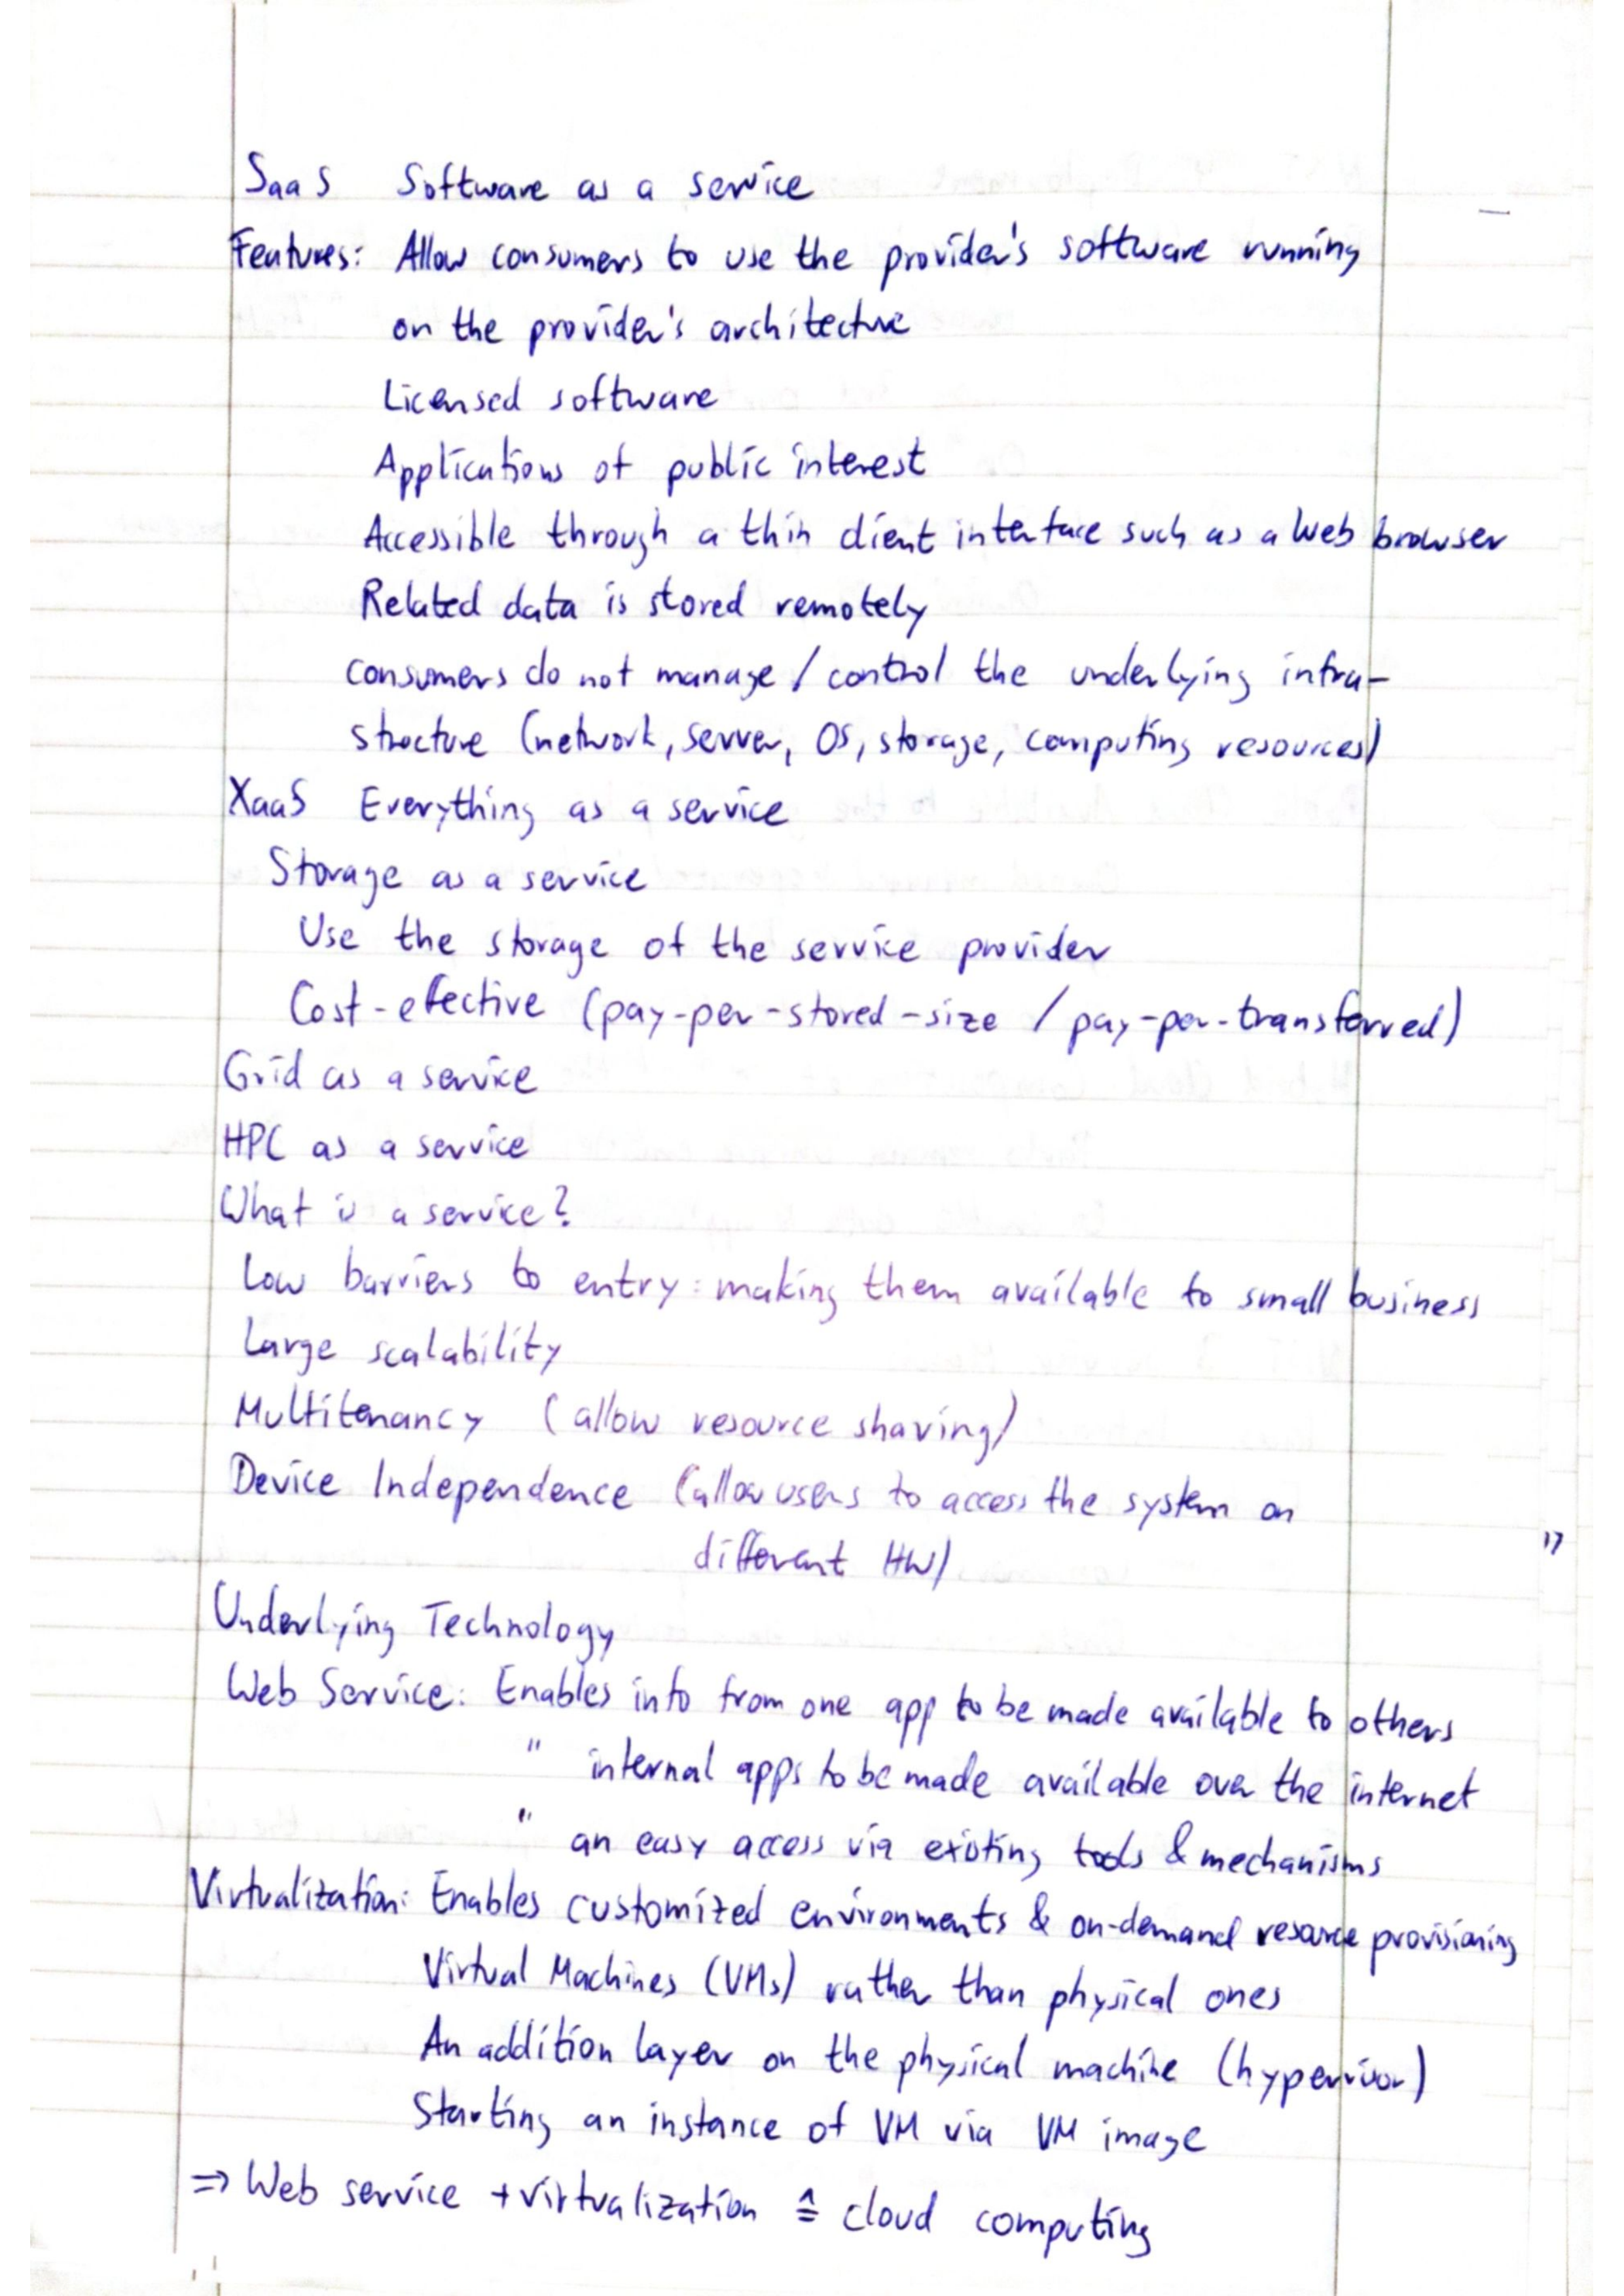 SaaS Software as a service
Features: Allow consumers to use the provider's software running
on the provider's architecture
Licensed software
Applications of public interest
Accessible through a thin client interface such as a Web browser
Related data is stored remotely
consumers do not manage / control the underlying infra-
structure (network, server, OS, storage, computing resources)
XaaS Everything as a service
Storage as a service
Use the storage of the service provider
Cost-effective (pay-per-stored-size / pay-per-transferred)
Grid as a service
HPC as a service
What is a service?
Low barriers to entry: making them available to small business
Large scalability
Multitenancy (allow resource sharing)
Device Independence (allow users to access the system on
different HW)
Underlying Technology
Web Service: Enables info from one app to be made available to others
" internal apps to be made available over the internet
" an easy access via existing tools & mechanisms
Virtualization: Enables customized environments & on-demand resource provisioning
Virtual Machines (VMs) rather than physical ones
An addition layer on the physical machine (hypervisor)
Starting an instance of VM via VM image
⇒ Web service + virtualization ≙ cloud computing